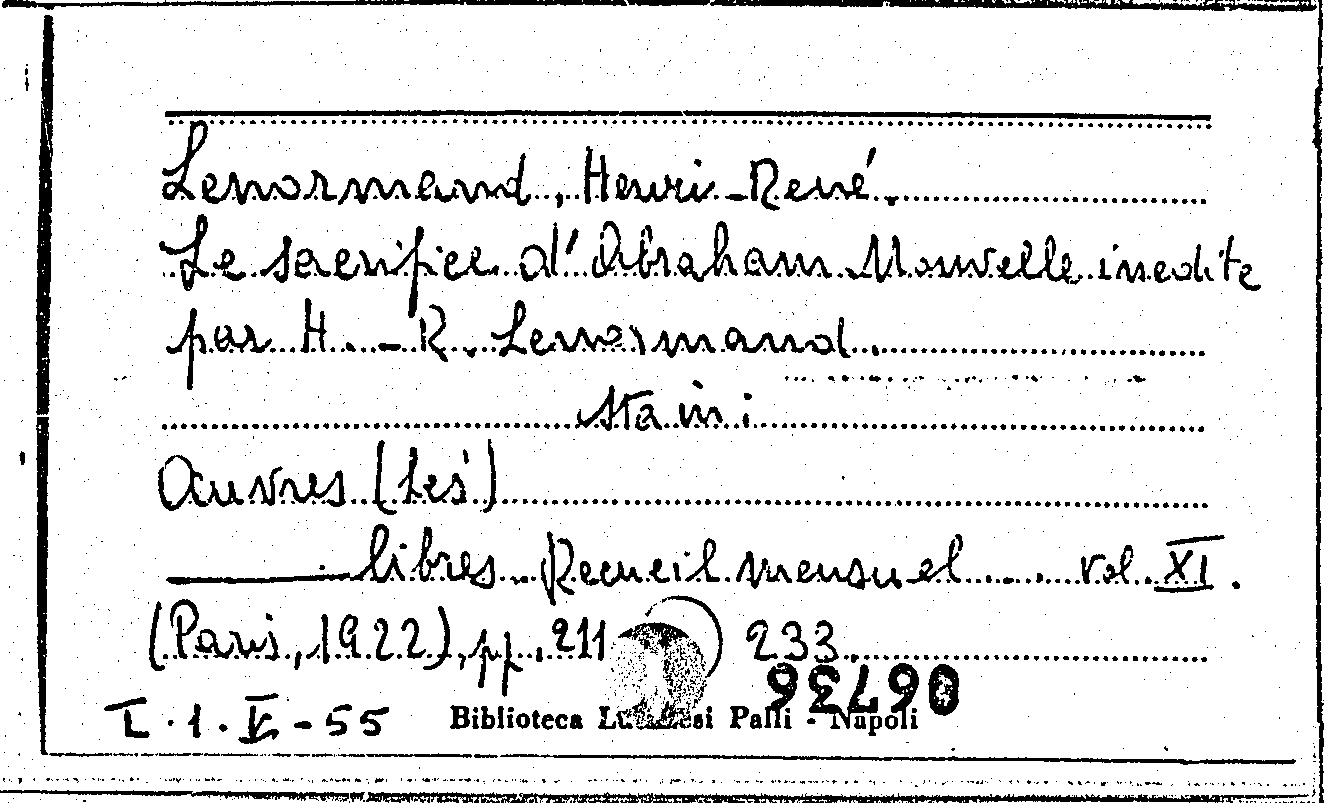 Lenormand, Henri-René.
Le sacrifice d'Abraham Nouvelle inedite
par H.-R. Lenormand.
sta in:
Oeuvres (Les)
libres. Recueil mensuel ... vol. XI.
(Paris, 1922), pp. 211 233.
06736
Biblioteca Lucchesi Palli - Napoli